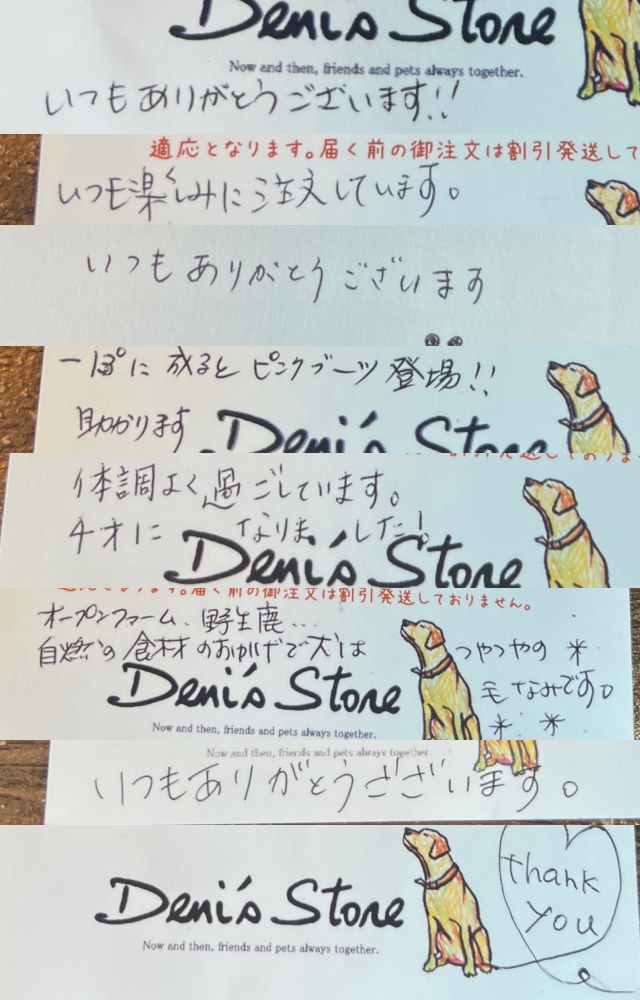 Deni's Store
Now and then, friends and pets always together.
いつもありがとうございます!!
適応となります。届く前の御注文は割引発送して
いつも楽しみに注文しています。
いつもありがとうございます
一ぽに成ると ピンクブーツ 登場!!
助かります
Deni's Store
体調よく過ごしています。
チオに なりました!
Deni's Store
適応となります。届く前の御注文は割引発送しておりません。
オープンファーム、野生鹿...
自燃の食材のおかげで犬は つやつやの
毛なみです。
Deni's Store
Now and then, friends and pets always together.
Now and then, friends and pets always together.
いつもありがとうございます。
Deni's Store
Now and then, friends and pets always together.
thank
you